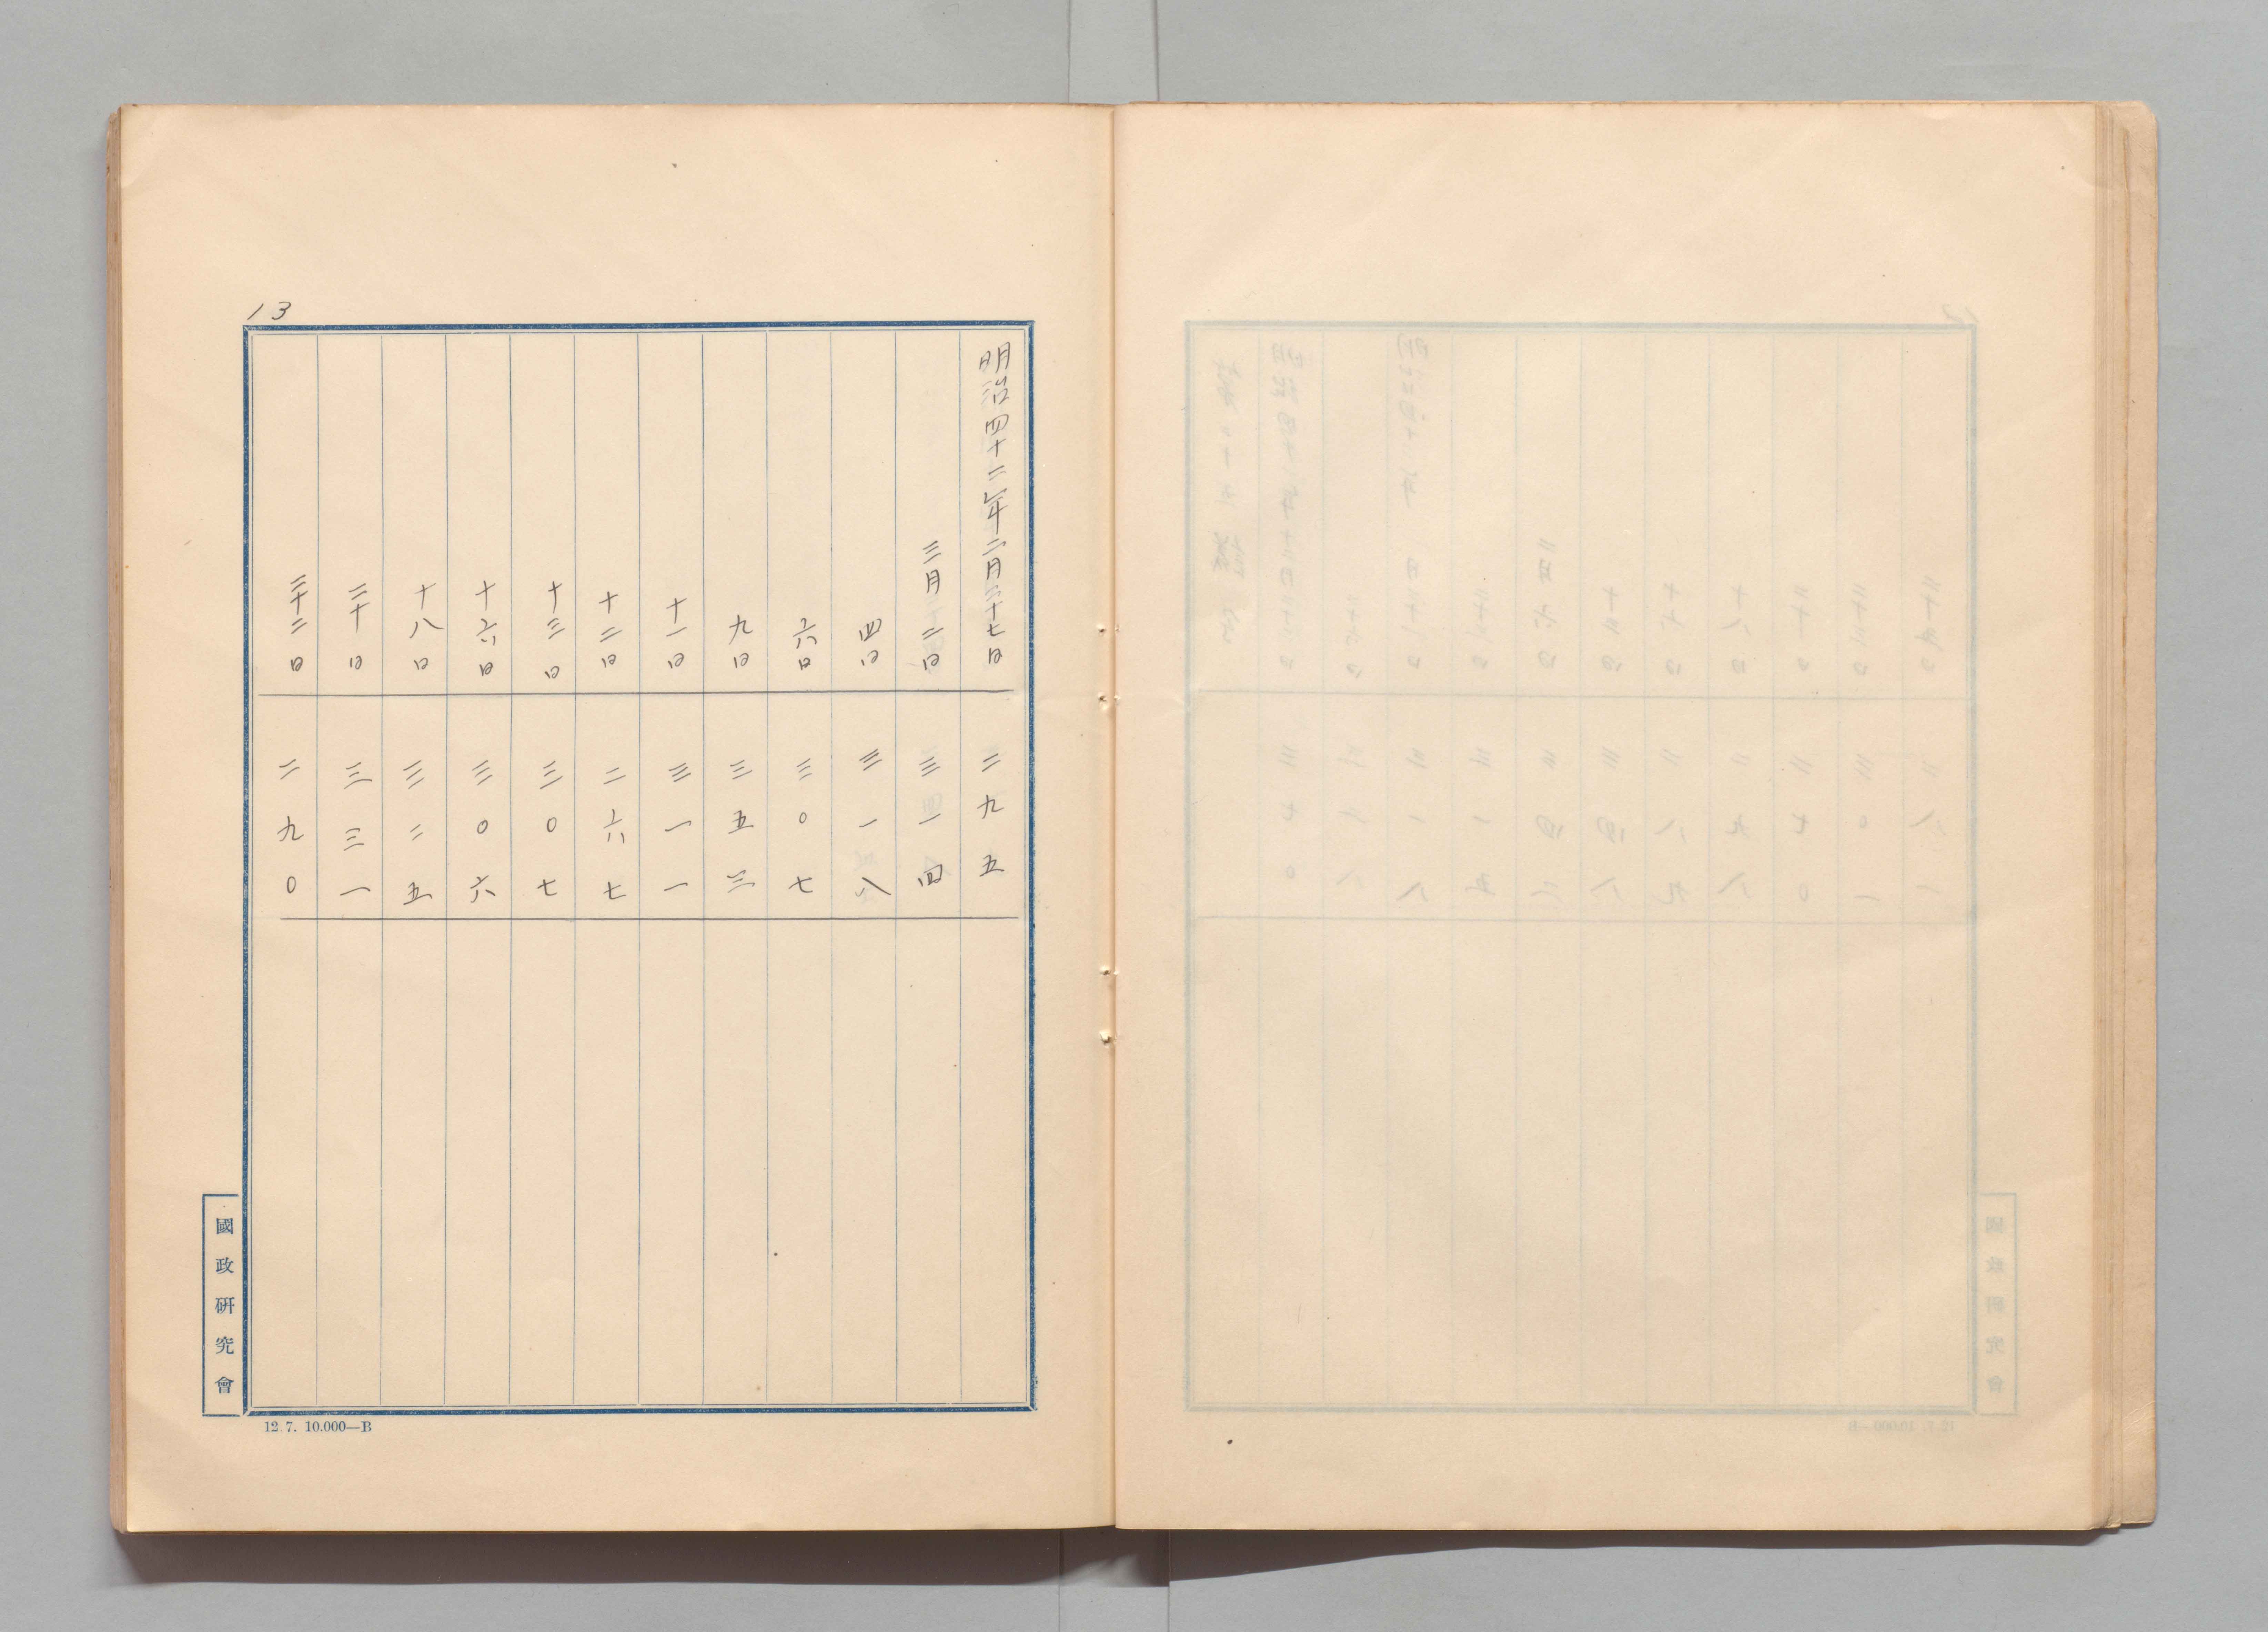 13
明治四十二年二月二十七日 二九五
三月二日 三一四
四日 三一八
六日 三〇七
九日 三五三
十一日 三一一
十二日 二六七
十三日 三〇七
十六日 三〇六
十八日 三二五
二十日 三三一
二十二日 二九〇
國政研究會
12.7. 10.000—B